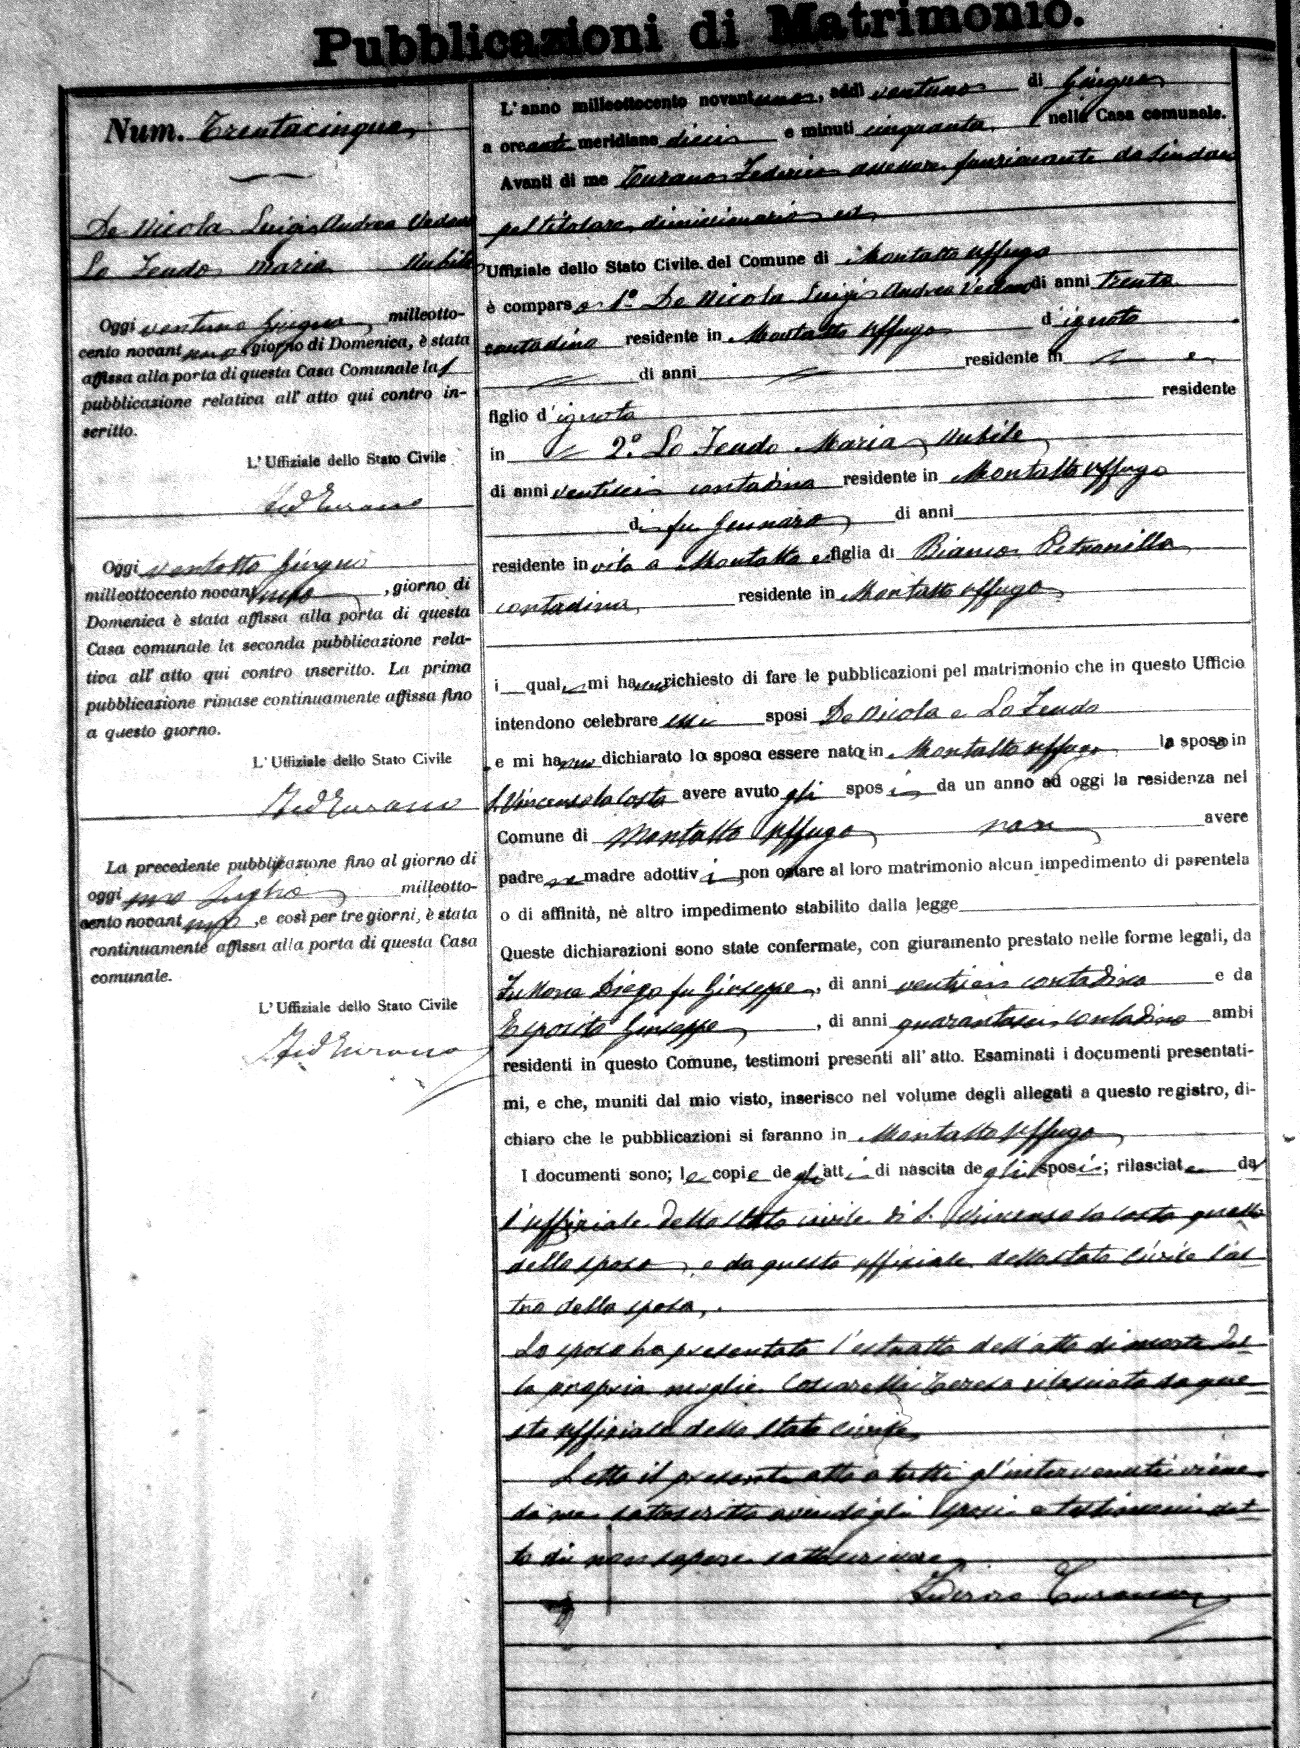 Pubblicazioni di Matrimonio.
Num. Trentacinque
De Nicola Luigi Andrea Vedovo
Lo Feudo Maria Nubile
Oggi ventuno Giugno milleotto-
cento novantuno giorno di Domenica, è stata
affissa alla porta di questa Casa Comunale la 1
pubblicazione relativa all' atto qui contro in-
scritto.
L'Uffiziale dello Stato Civile
Fed Turano
Oggi ventotto Giugno
milleottocento novantuno, giorno di
Domenica è stata affissa alla porta di questa
Casa comunale la seconda pubblicazione rela-
tiva all' atto qui contro inscritto. La prima
pubblicazione rimase continuamente affissa fino
a questo giorno.
L'Uffiziale dello Stato Civile
Fed Turano
La precedente pubblicazione fino al giorno di
oggi uno Luglio milleotto-
cento novantuno, e così per tre giorni, è stata
continuamente affissa alla porta di questa Casa
comunale.
L'Uffiziale dello Stato Civile
Fed Turano
L'anno milleottocento novantuno, addì ventuno di Giugno
a ore anti meridiane dieci e minuti cinquanta nella Casa comunale.
Avanti di me Turano Federico assessore funzionante da Sindaco
pel titolare dimissionario ed
Uffiziale dello Stato Civile del Comune di Montalto Uffugo
è comparso 1° De Nicola Luigi Andrea Vedovo di anni trenta
contadino residente in Montalto Uffugo d'ignoto
di anni residente in e
figlio d'ignota residente
in 2° Lo Feudo Maria Nubile
di anni ventisei contadina residente in Montalto Uffugo
di fu Gennaro di anni
residente in vita a Montalto e figlia di Bianco Petronilla
contadina residente in Montalto Uffugo
i quali mi hanno richiesto di fare le pubblicazioni pel matrimonio che in questo Ufficio
intendono celebrare essi sposi De Nicola e Lo Feudo
e mi hanno dichiarato la sposa essere nata in Montalto Uffugo lo sposo in
S. Vincenzo la Costa avere avuto gli sposi da un anno ad oggi la residenza nel
Comune di Montalto Uffugo non avere
padre ne madre adottivi non ostare al loro matrimonio alcun impedimento di parentela
o di affinità, nè altro impedimento stabilito dalla legge
Queste dichiarazioni sono state confermate, con giuramento prestato nelle forme legali, da
Diego fu Giuseppe, di anni ventisei contadino e da
Esposito Giuseppe, di anni quarantasei contadino ambi
residenti in questo Comune, testimoni presenti all' atto. Esaminati i documenti presentati-
mi, e che, muniti dal mio visto, inserisco nel volume degli allegati a questo registro, di-
chiaro che le pubblicazioni si faranno in Montalto Uffugo
I documenti sono; le copie degli atti di nascita degli sposi; rilasciate dal
l'uffiziale dello stato civile di S. Vincenzo la Costa quella
dello sposo, e da questo uffiziale dello stato Civile l'al-
tra della sposa.
Lo sposo ha presentato l'estratto dell'atto di morte del-
la propria moglie Coscarelli Teresa rilasciato da que-
sto uffiziale dello Stato Civile
Letto il presente atto a tutti gl'intervenuti viene
da me sottoscritto avendo gli sposi e testimoni det-
to di non sapere sottoscrivere
Federico Turano